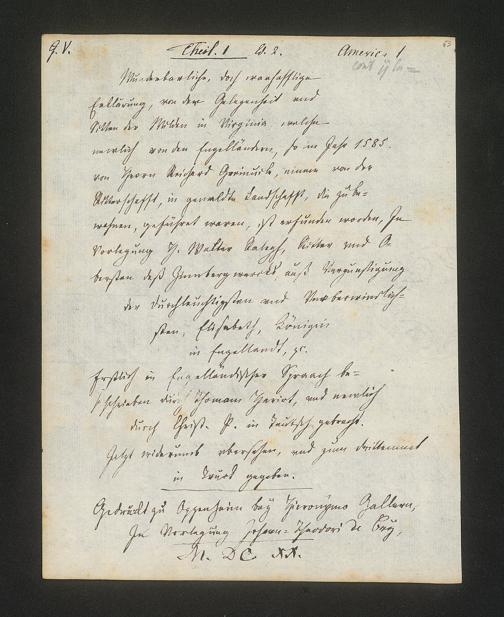 G. V. Theil. 1 A. 2. Americ. 1 63
Wunderbarliche, doch warhafftige
Erklärung, von der Gelegenheit und
Sitten der Wilden in Virginia, welche
newlich von den Engelländern, so im Jahr 1585.
von Herrn Reichard Greinuile, einem von der
Ritterschafft, in gemeldte Landschafft, die zu be-
wohnen, geführet waren, ist erfunden worden, In
Verlegung H. Walter Raleigh, Ritter und O
bersten deß Zinnbergwercks auß Vergünstigung
der Durchleuchtigsten und Unvberwindlich-
sten, Elisabeth, Königin
in Engellandt, ꝛc.
Erstlich in Engelländischer Spraach be-
schrieben durch Thomam Hariot, und newlich
durch Christ. P. in Teutsch gebracht.
Jetzt widerumb vbersehen, und zum drittenmal
in Truck gegeben.
Gedruckt zu Oppenheim bey Hieronymo Gallern,
In Verlegung Johann-Theodori de Bry,
M. DC XX.